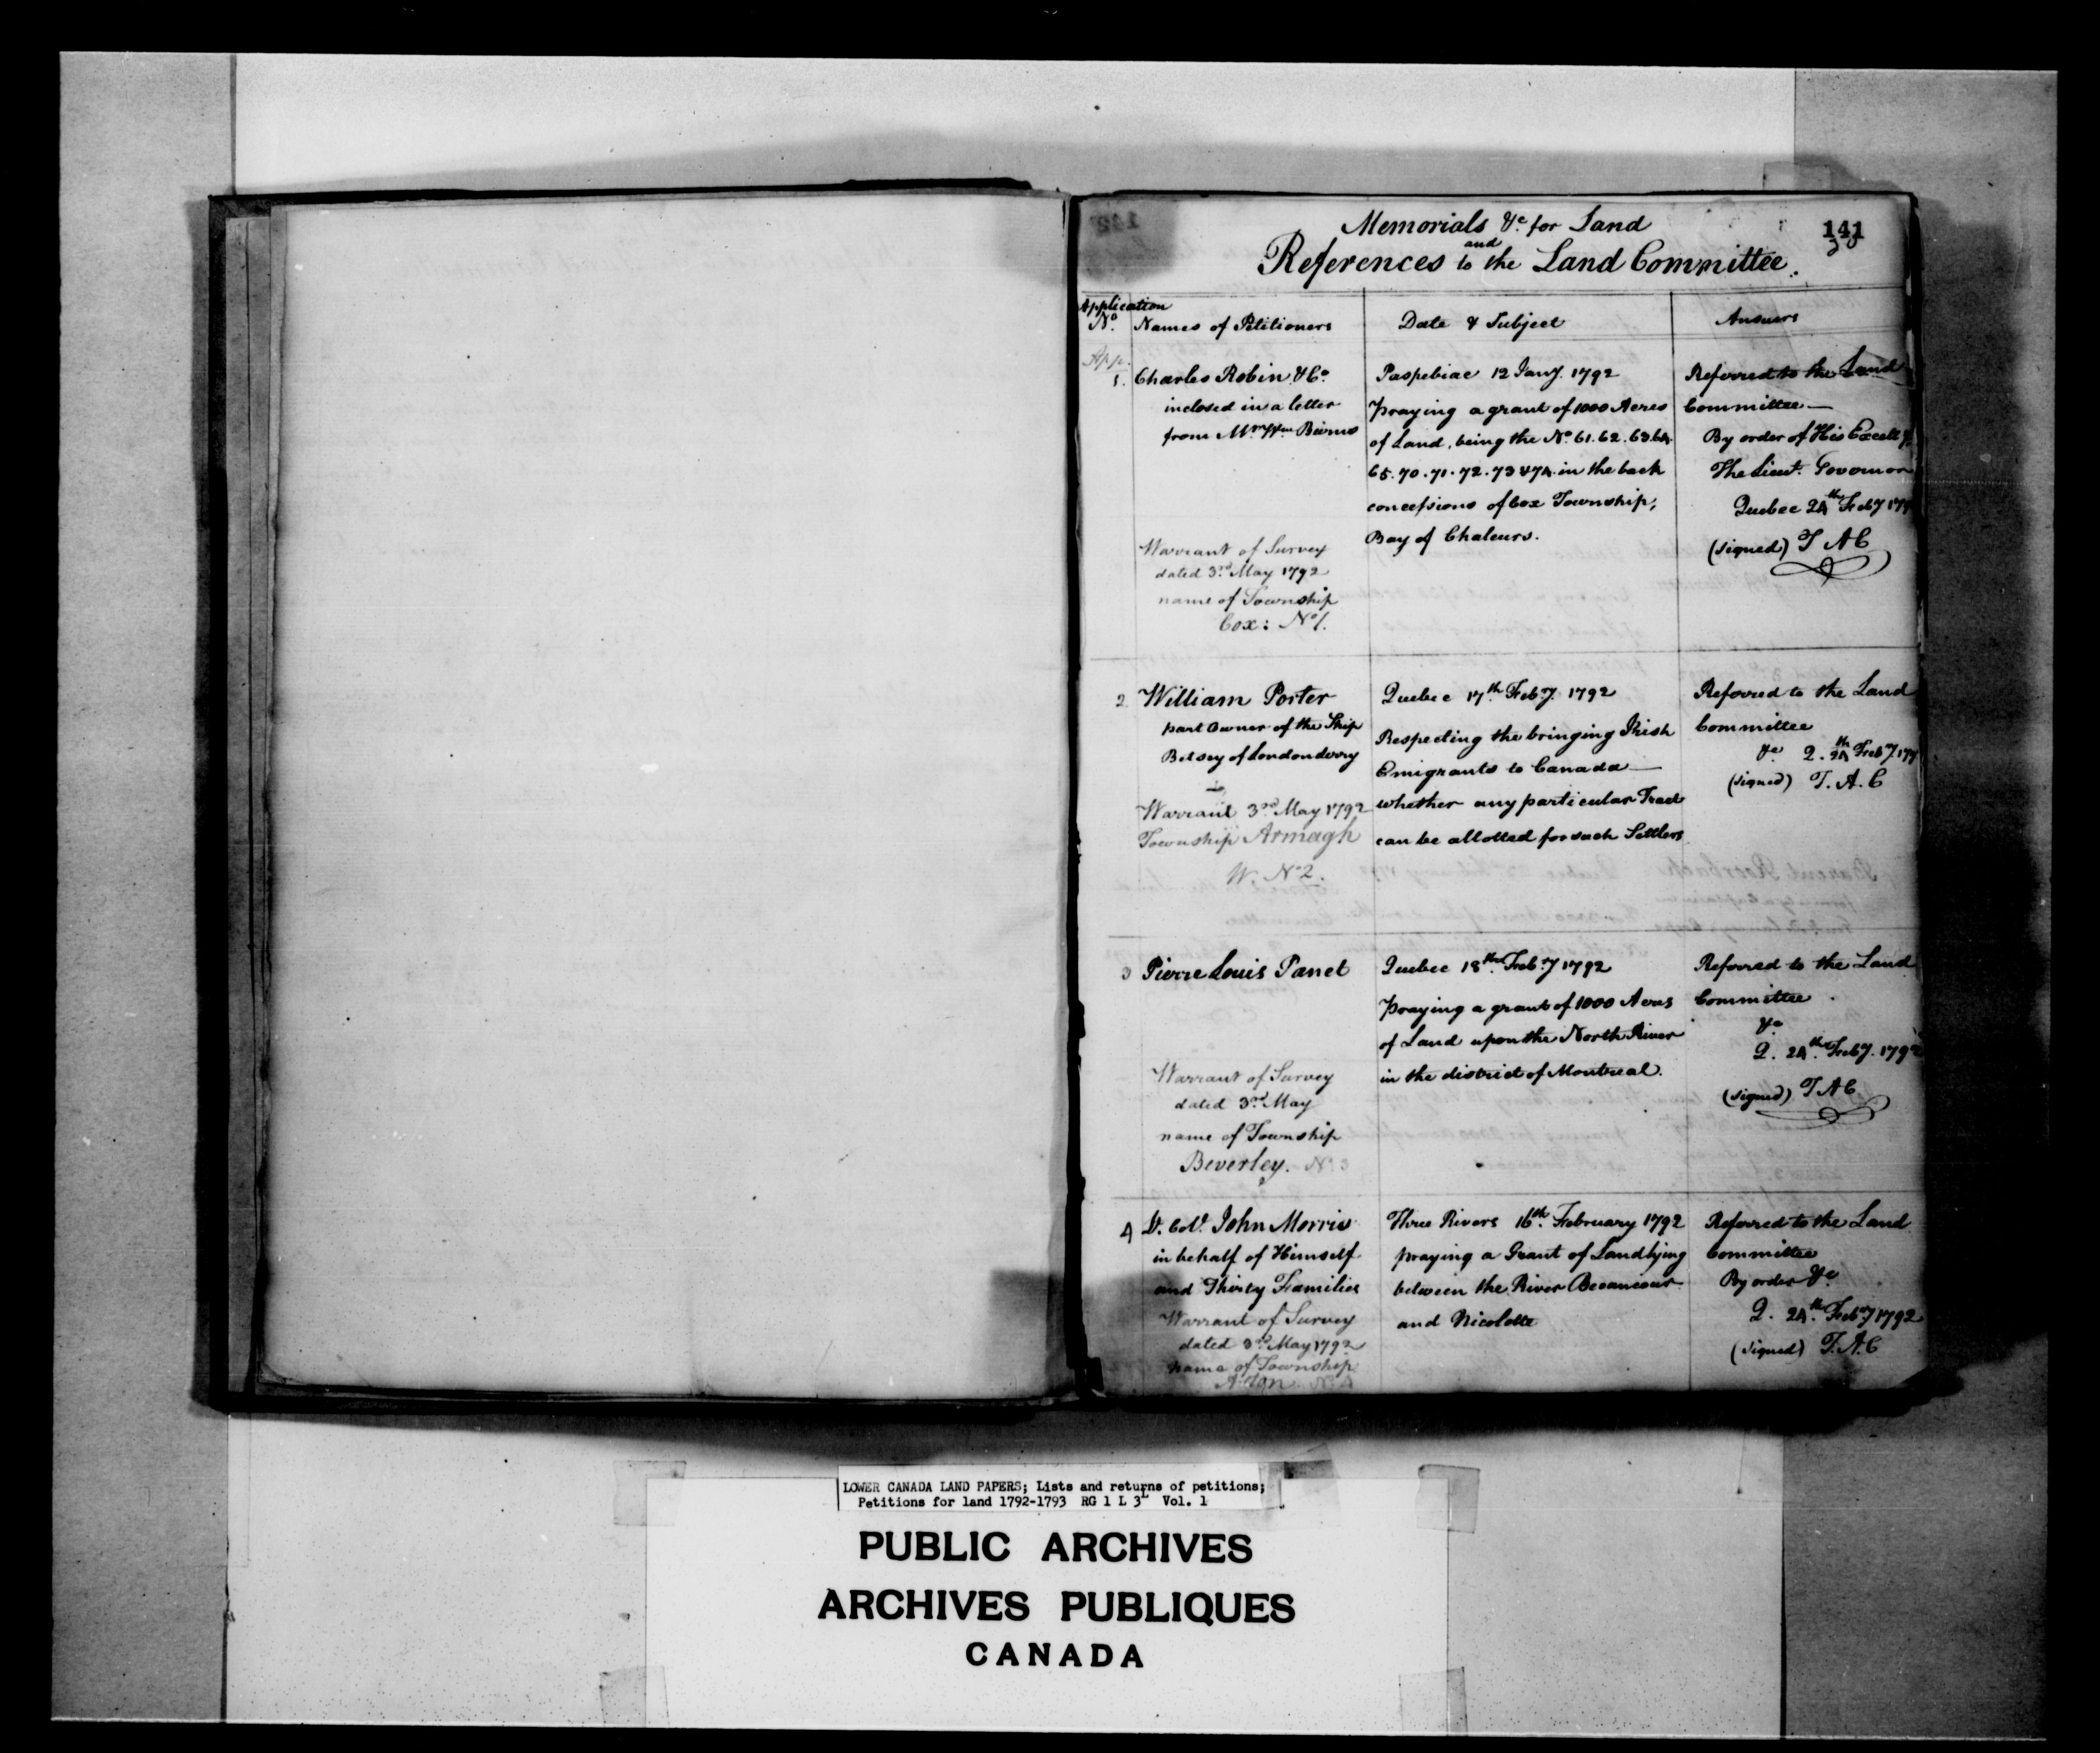 Memorials &c. for Land
and
References to the Land Committee.
141
Application
No. Names of Petitioners
Date & Subject
Answers
App.
1. Charles Robin & Co.
inclosed in a letter
from Mr. Wm.
Warrant of Survey
dated 3rd May 1792
name of Township
Cox: No 1.
Paspebiac 12 Jany. 1792
praying a grant of 1000 Acres
of Land, being the No. 61. 62. 63. 64.
65. 70. 71. 72. 73 & 74. in the back
concessions of Cox Township,
Bay of Chaleurs.
Referred to the Land
Committee —
By order of His Excelly.
The Lieut. Governor
Quebec 24th Feby 179
(signed) T A C
2 William Porter
part Owner of the Ship
Betsey of Londonderry
Warrant 3rd May 1792
Township Armagh
W. No 2.
Quebec 17th Feby. 1792
Respecting the bringing Irish
Emigrants to Canada —
whether any particular Tract
can be allotted for such Settlers
Referred to the Land
Committee
&c Q. 24th Feby. 179
(signed) T. A. C
3 Pierre Louis Panet
Warrant of Survey
dated 3rd May
name of Township
Beverley. No. 3
Quebec 18th Feby 1792
praying a grant of 1000 Acres
of Land upon the North River
in the district of Montreal.
Referred to the Land
Committee.
&c
Q. 24th Feby. 1792
(signed) T A C
4 Lt. Coll. John Morris
in behalf of Himself
and Thirty Families
Warrant of Survey
dated 3rd May 1792
name of Township
No. 4
Three Rivers 16th. February 1792
praying a Grant of Land lying
between the River Becancour
and Nicolette
Referred to the Land
Committee
By order &c
Q. 24th. Feby 1792
(signed) T. A. C
LOWER CANADA LAND PAPERS; Lists and returns of petitions;
Petitions for land 1792-1793 RG 1 L 3L Vol. 1
PUBLIC ARCHIVES
ARCHIVES PUBLIQUES
CANADA